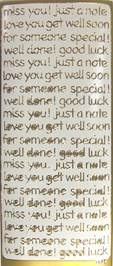 miss you! just a note
love you get well soon
for someone special!
well done! good luck
miss you! just a note
love you get well soon
for someone special!
well done! good luck
miss you! just a note
love you get well soon
for someone special!
well done! good luck
miss you! just a note
love you get well soon
for someone special!
well done! good luck
miss you! just a note
love you get well soon
for someone special
well done! good luck